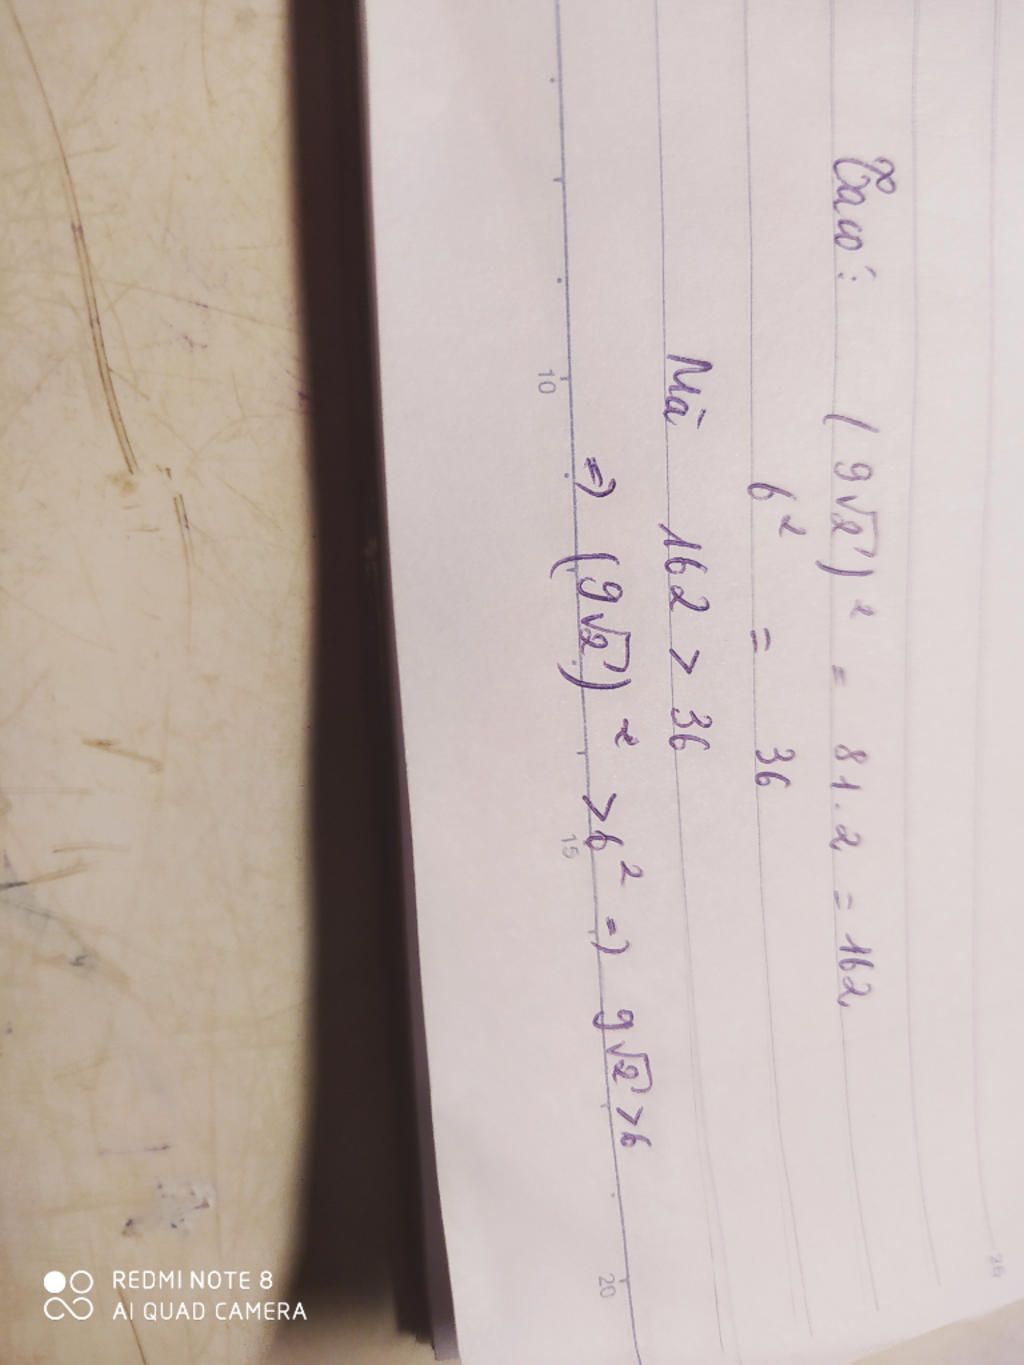 Ta có: (9√2)² = 81.2 = 162
6² = 36
Mà 162 > 36
=) (9√2)² > 6² =) 9√2 > 6
10
15
20
26
REDMI NOTE 8
AI QUAD CAMERA